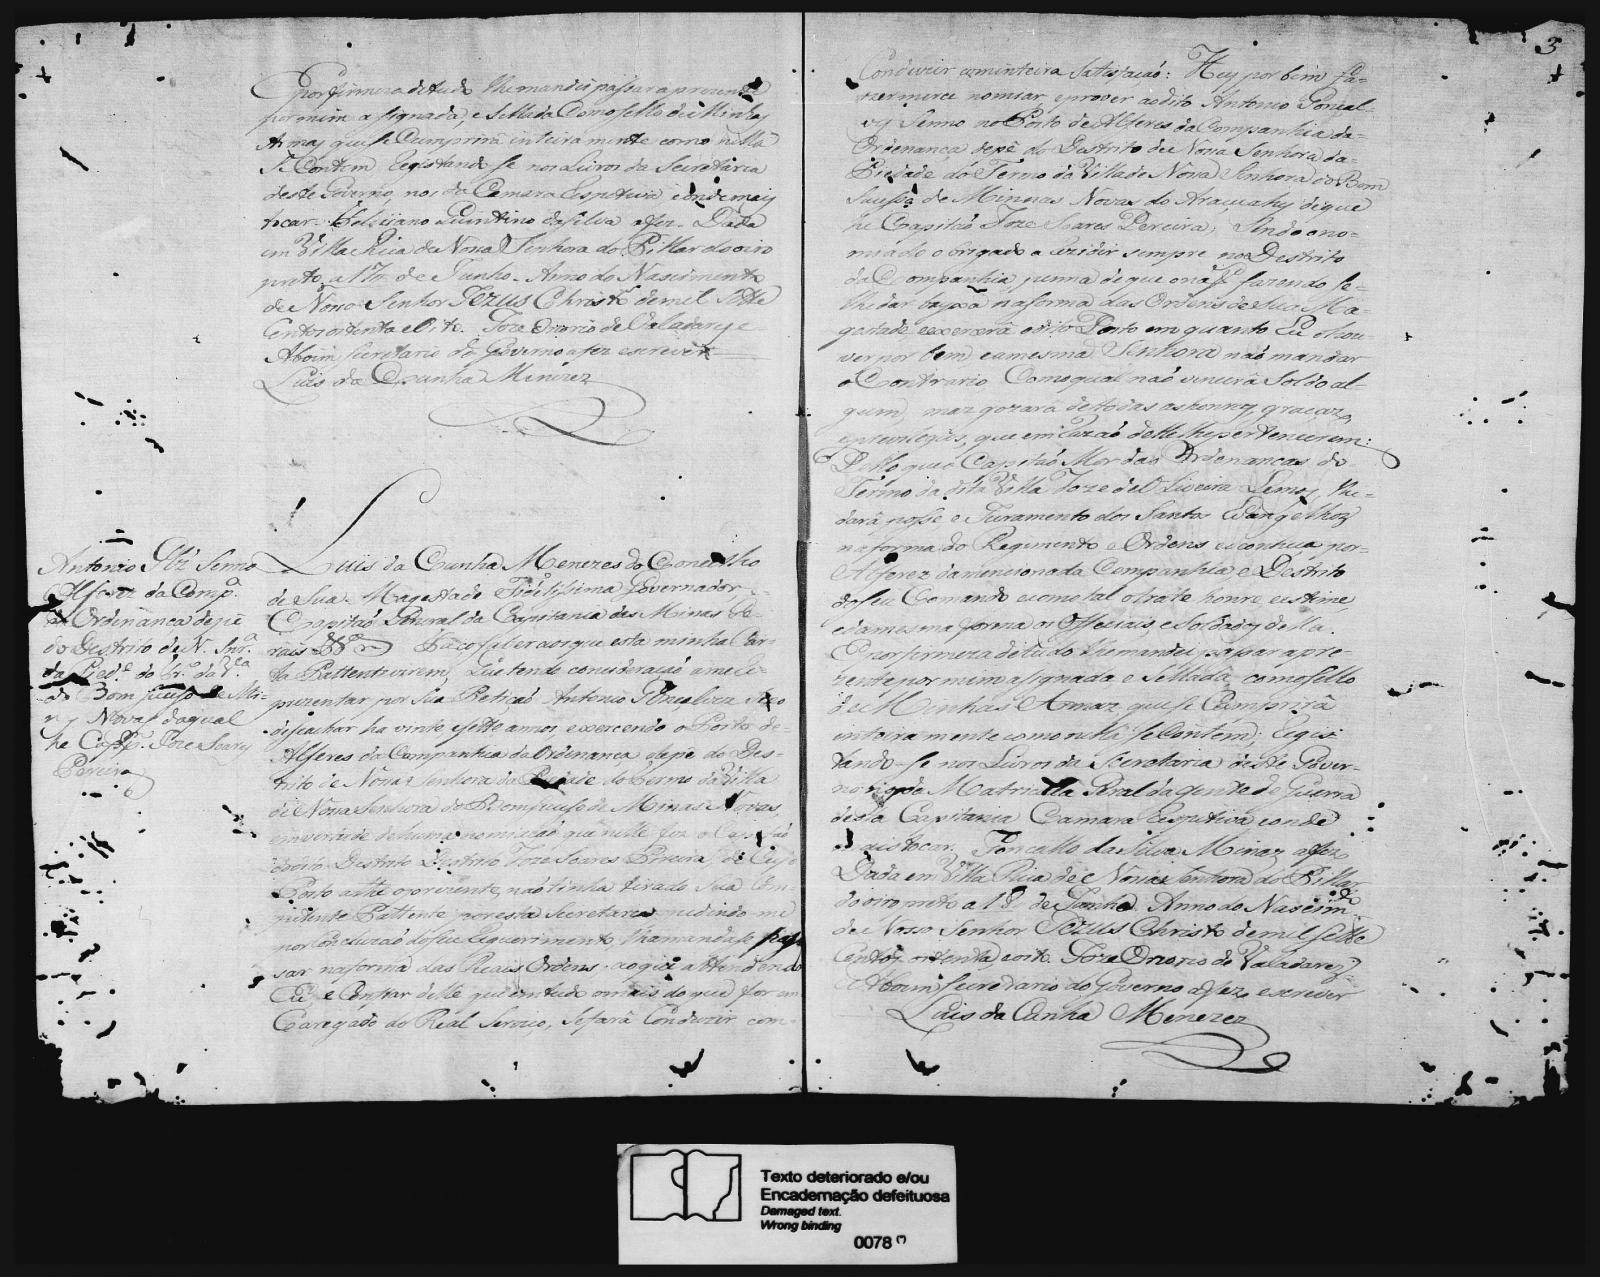 por firmeza de tudo lhe mandei passar a prezente
por mim asignada, e Sellada Como sello de Minhas
Armas que se Cumprirá inteiramente como nella
Se Contem Registando-se nos Livros da Secretaria
deste Governo, nos da Camara Respetiva e onde mais
tocar. Feliciano da Silva a fez. Dada
em Villa Rica de Nossa Senhora do Pillar do oiro
preto a 17 de Junho. Anno do Nascimento
de Nosso Senhor Jezus Christo de mil Sette
Centos oitenta e Oito. Joze Onorio de Valadares e
Aboim Secretario do Governo a fez escrever
Luis da Cunha Menezes
Antonio Glz' Senno
Alferez da Comp.ª
da Ordenança de pé
do Destrito de N. Snr.ª
da Pied.e do Tr.º da V.ª
do Bom Sucesso de Mi-
nas Novas daqual
he Capp.m Joze Soares
Pereira
Luis da Cunha Menezes do Concelho
de Sua Magestade Fidelissima Governador e
Capitaõ General da Capitania de Minas Ge-
raes &ª Faço saber aos que esta minha Car-
ta Pattente virem, Que tendo consideraçaõ ame Re-
prezentar por Sua Petiçaõ Antonio Gonçalvez Seno
de se achar ha vinte esette annos exercendo o Posto de
Alferes da Companhia da Ordenança depé do Des-
trito de Nossa Senhora da Piedade do Termo da Villa
de Nossa Senhora do Bom Sucesso de Minas Novas,
em virtude de huma nomiaçaõ que nelle fez o Capitaõ
do dito Destrito Joze Soares Pereira, de Cujo
Posto athe o prezente, naõ tinha tirado Sua Com-
petente Pattente por esta Secretaria pedindo-me
por Concluzaõ de seu Requerimento lha mandase pas-
sar na forma das Reais Ordens aoque attendendo
Eu e Confiar delle que em tudo o mais do que for en-
Caregado do Real Servico, Se fará Conduzir com
3
Conduzir com inteira Satisfaçaõ: Hey por bem fa-
zer merce nomiar, e prover ao dito Antonio Goncal-
vez Senno no Posto de Alferes da Companhia da
Ordenança depé do Destrito de Nossa Senhora da
Piedade do Termo da Villa de Nossa Senhora do Bom
Sucesso de Minas Novas do Arasuahy de que
he Capitaõ Joze Soares Pereira, Sendo o no-
miado obrigado a Rezidir sempre no Destrito
da Companhia, penna de que o naõ fazendo se
lhe dar bayxa na forma das Orders de Sua Ma-
gestade, e exercerá o dito Posto em quanto Eu o hou-
ver por bem e a mesma Senhora naõ mandar
o Contrario Com o qual naõ vencerá Soldo al-
gum, mas gozará de todas as honras, graças,
e previlegios, que em Razaõ delle lhe pertencerem:
Pello que o Capitaõ Mor das Ordenanças do
Termo da dita Villa Joze de Oliveira Lemos, lhe
dará posse e Juramento dos Santos Evangelhos
na forma do Regimento e Ordens e continua por
Alferez da mencionada Companhia e Destrito
do seu Comando e como tal o trate honre, e estime,
e da mesma forma os Offeciais, e Soldados della.
E por firmeza de tudo lhe mandei passar a pre-
zente por mim asignada e Sellada, com o sello
de Minhas Armas que se Cumprirá
inteiramente como nella se Contém; Regis-
tando-se nos Livros da Secretaria deste Gover-
no no da Matricolla Geral da gente de Guerra
desta Capitania Camara Respetiva e onde
mais tocar. Goncallo da Silva Minas a fez
Dada em Villa Rica de Nossa Senhora do Pillar
do oiro preto a 18 de Junho Anno do Nascim.to
de Nosso Senhor Jezus Christo de mil Sette
Centos oitenta, e oito. Joze Onorio de Valadares
e Aboim Secretario do Governo a fez, escrever
Luis da Cunha Menezes
Texto deteriorado e/ou
Encadernação defeituosa
Damaged text.
Wrong binding
0078 (*)